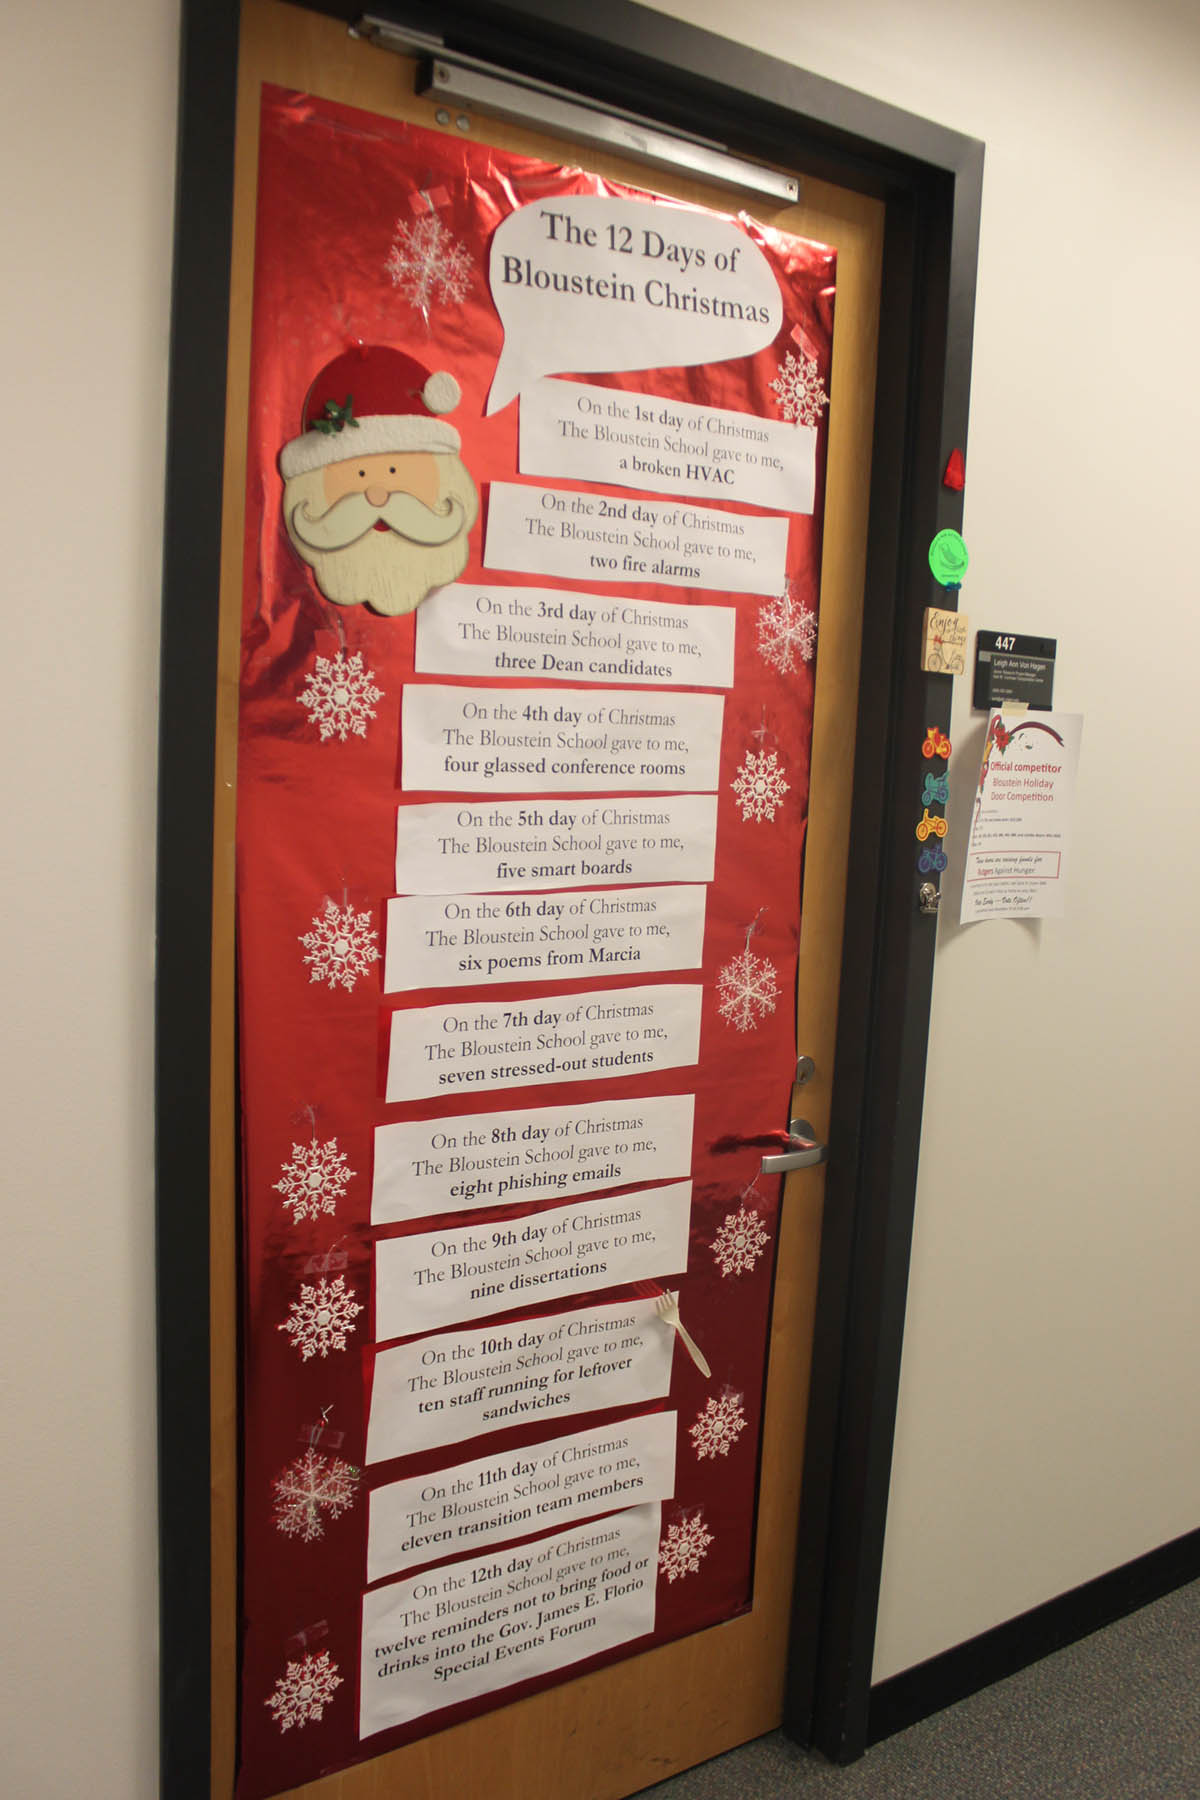 The 12 Days of
Bloustein Christmas
On the 1st day of Christmas
The Bloustein School gave to me,
a broken HVAC
On the 2nd day of Christmas
The Bloustein School gave to me,
two fire alarms
On the 3rd day of Christmas
The Bloustein School gave to me,
three Dean candidates
On the 4th day of Christmas
The Bloustein School gave to me,
four glassed conference rooms
On the 5th day of Christmas
The Bloustein School gave to me,
five smart boards
On the 6th day of Christmas
The Bloustein School gave to me,
six poems from Marcia
On the 7th day of Christmas
The Bloustein School gave to me,
seven stressed-out students
On the 8th day of Christmas
The Bloustein School gave to me,
eight phishing emails
On the 9th day of Christmas
The Bloustein School gave to me,
nine dissertations
On the 10th day of Christmas
The Bloustein School gave to me,
ten staff running for leftover
sandwiches
On the 11th day of Christmas
The Bloustein School gave to me,
eleven transition team members
On the 12th day of Christmas
The Bloustein School gave to me,
twelve reminders not to bring food or
drinks into the Gov. James E. Florio
Special Events Forum
Enjoy
447
Leigh Ann Von Hagen
Official competitor
Bloustein Holiday
Door Competition
Rutgers Against Hunger
Vote Often!!